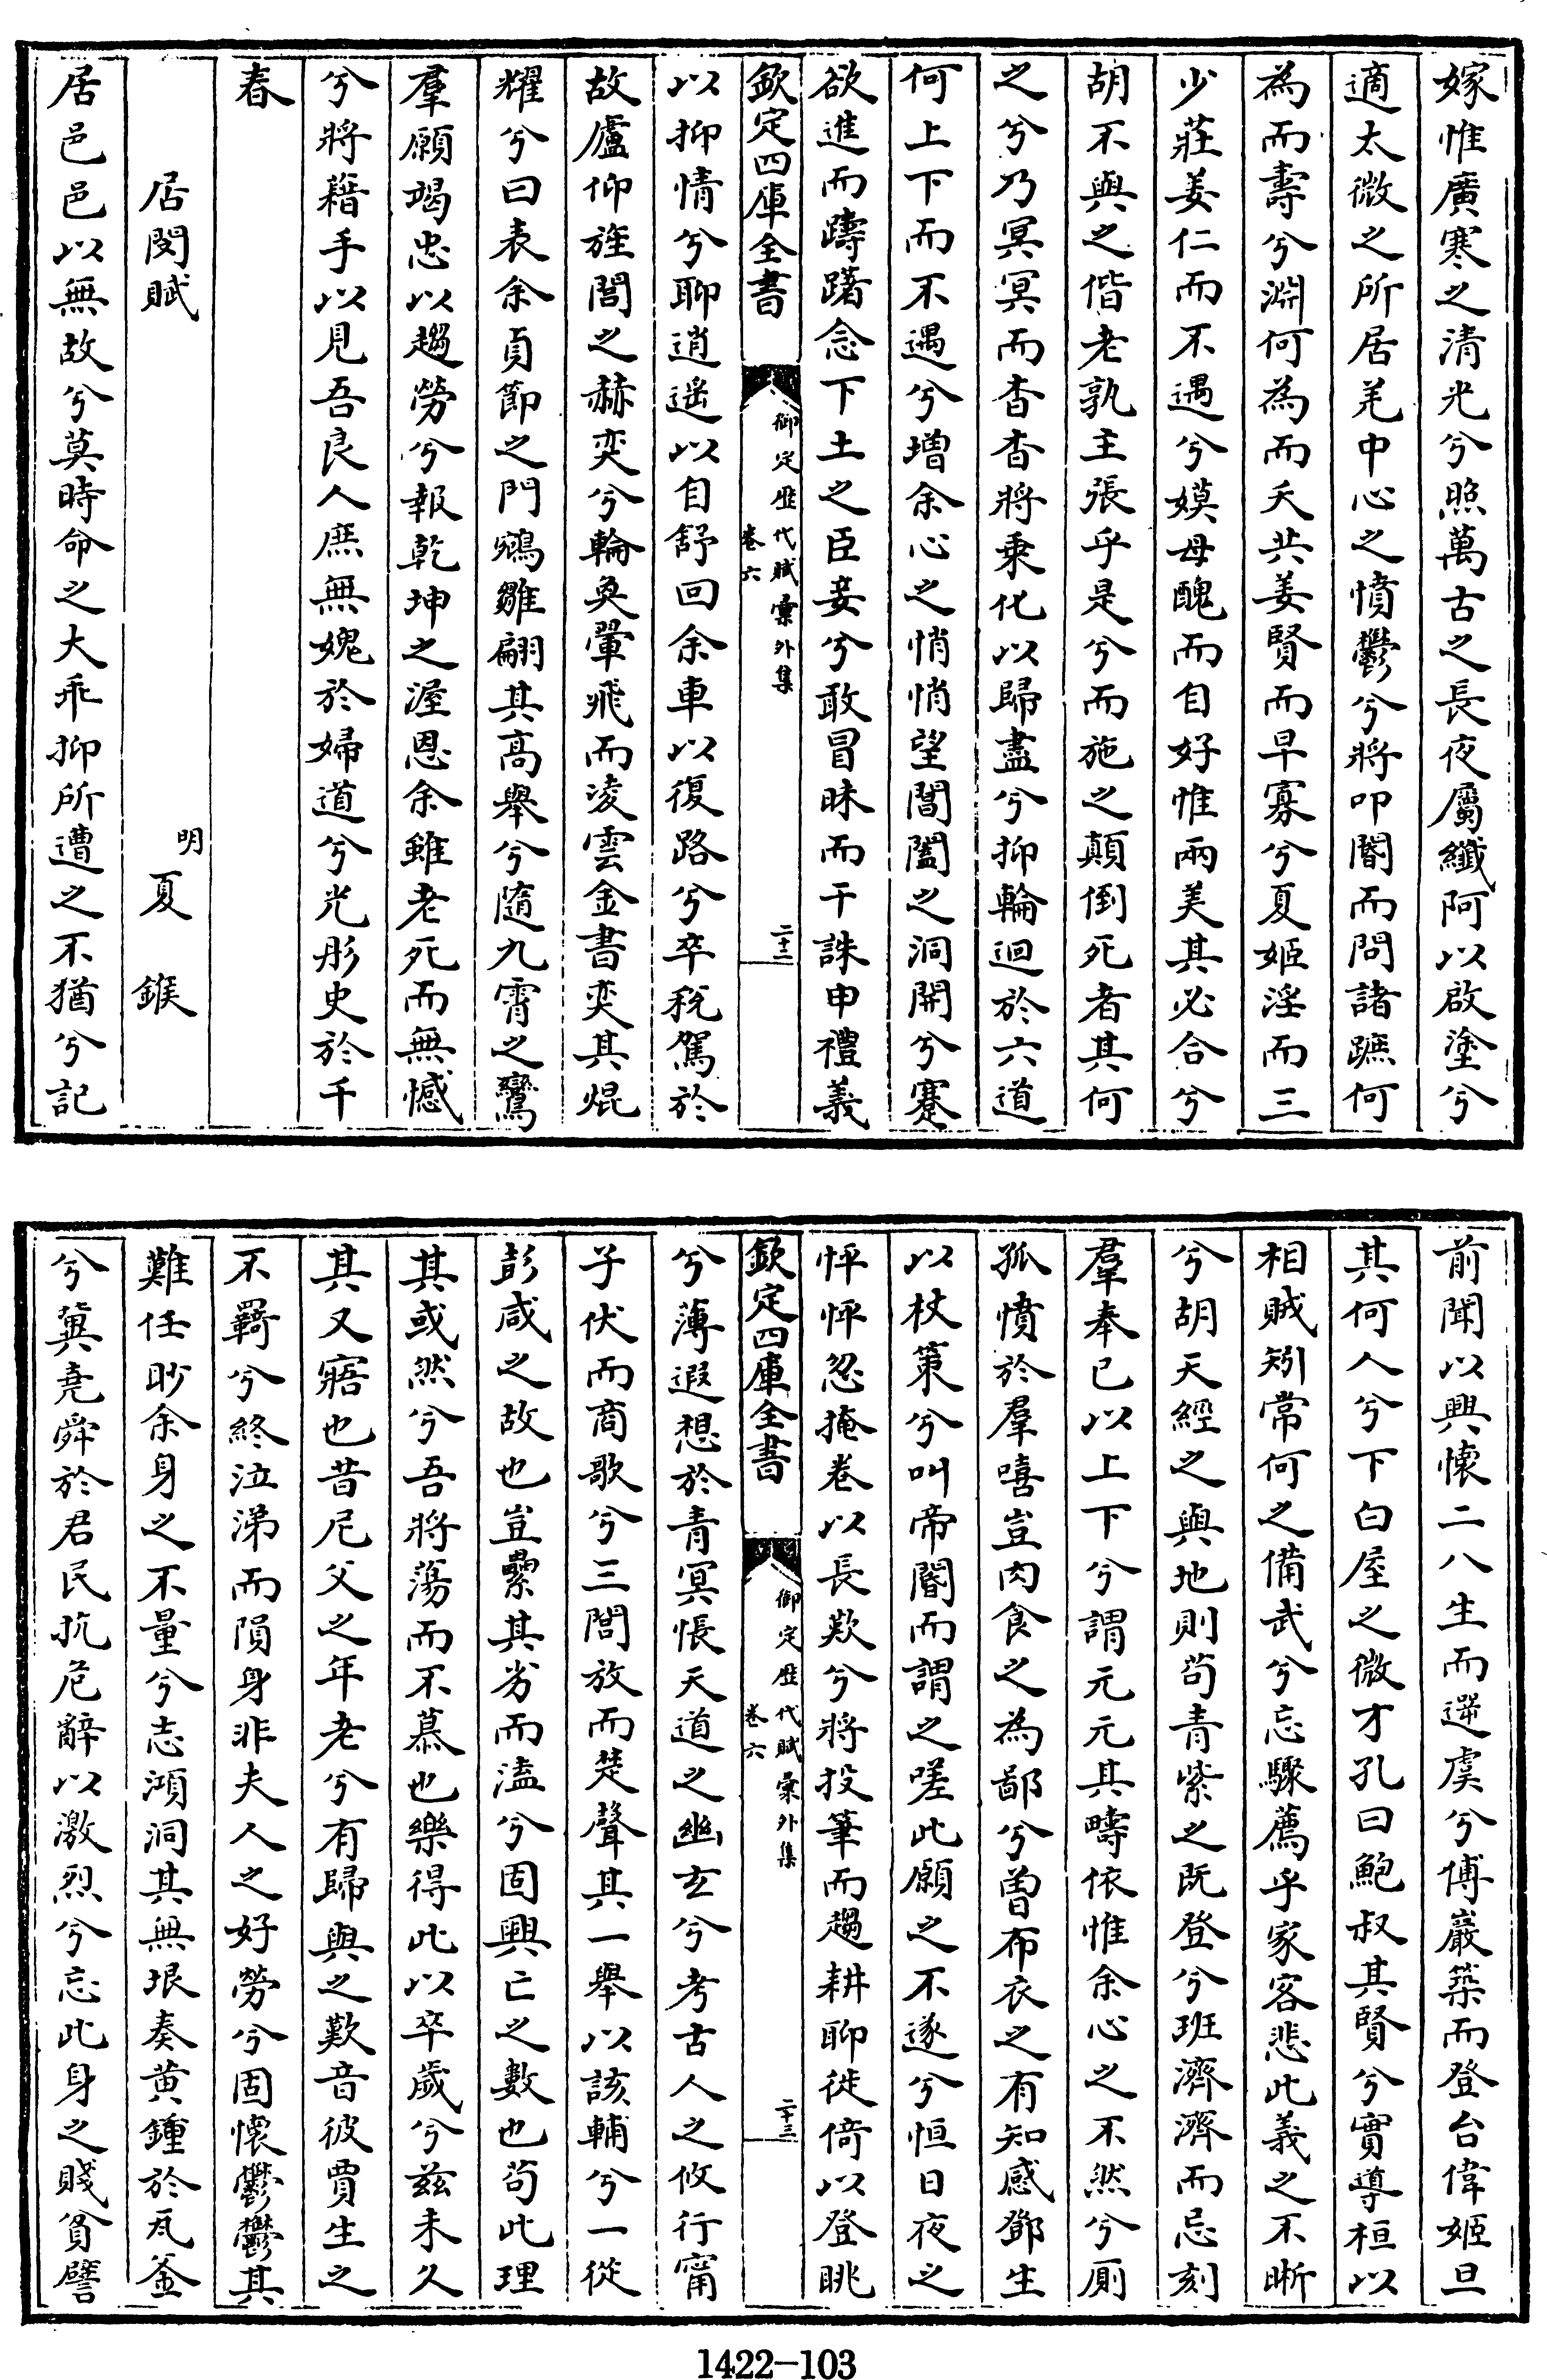 嫁惟廣寒之清光兮照萬古之長夜屬纖阿以啟塗兮
適太微之所居羌中心之憤鬱兮將叩閽而問諸蹠何
為而壽兮淵何為而夭共姜賢而早寡兮夏姬淫而三
少莊姜仁而不遇兮嫫母醜而自好惟兩美其必合兮
胡不與之偕老孰主張乎是兮而施之顛倒死者其何
之兮乃冥冥而杳杳將乘化以歸盡兮抑輪迴於六道
何上下而不遇兮增余心之悄悄望閶闔之洞開兮蹇
欲進而躊躇念下土之臣妾兮敢冒昧而干誅申禮義
欽定四庫全書
御定歷代賦彙外集
卷六
二十三
以抑情兮聊逍遙以自舒回余車以復路兮卒稅駕於
故廬仰旌閭之赫奕兮輪奐翬飛而凌雲金書奕其焜
耀兮曰表余貞節之門鵷雛翩其高舉兮隨九霄之鸞
羣願竭忠以趨勞兮報乾坤之渥恩余雖老死而無憾
兮將藉手以見吾良人庶無媿於婦道兮光彤史於千
春
居閔賦
明
夏鍭
居邑邑以無故兮莫時命之大乖抑所遭之不猶兮記
前聞以興懷二八生而遻虞兮傅巖築而登台偉姬旦
其何人兮下白屋之微才孔曰鮑叔其賢兮實導桓以
相賊矧常何之備武兮忘驟薦乎家客悲此義之不晣
兮胡天經之與地則茍青紫之既登兮班濟濟而忌刻
羣奉已以上下兮謂元元其疇依惟余心之不然兮厠
孤憤於羣嘻豈肉食之為鄙兮曽布衣之有知感鄧生
以杖策兮叫帝閽而謂之嗟此願之不遂兮恒日夜之
怦怦忽掩卷以長歎兮將投筆而趨耕聊徙倚以登眺
欽定四庫全書
御定歷代賦彙外集
卷六
二十三
兮薄遐想於青冥悵天道之幽玄兮考古人之攸行甯
子伏而商歌兮三閭放而楚聲其一舉以該輔兮一從
彭咸之故也豈纍其劣而溘兮固興亡之數也茍此理
其或然兮吾將蕩而不慕也樂得此以卒歲兮兹未久
其又寤也昔尼父之年老兮有歸與之歎音彼賈生之
不羇兮終泣涕而隕身非夫人之好勞兮固懷鬱鬱其
難任眇余身之不量兮志澒洞其無垠奏黄鍾於瓦釜
兮冀堯舜於君民抗危辭以激烈兮忘此身之賤貧譬
1422-103